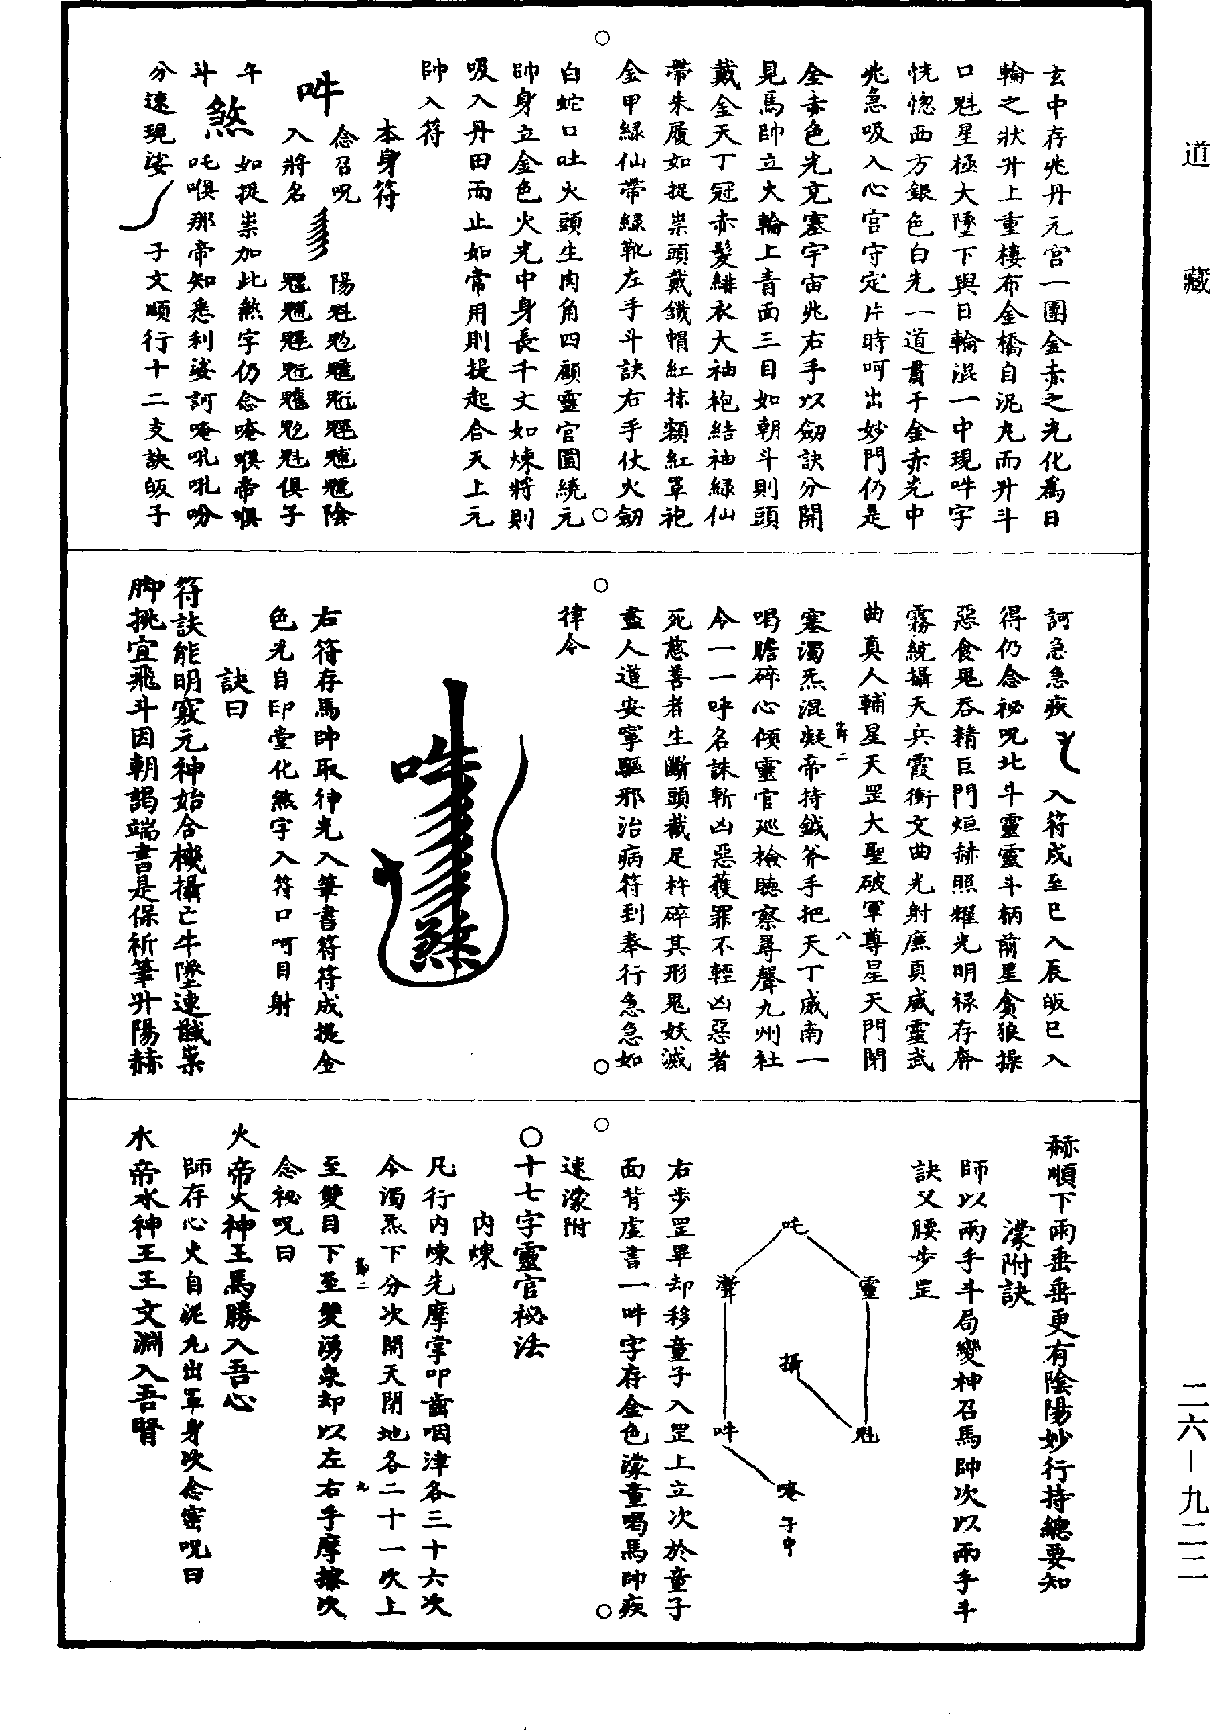 道藏
玄中存兆丹元宮一團金赤之光化為日
輪之狀升上重樓布金橋自泥丸而升斗
口魁星極大墜下與日輪混一中現吽字
恍惚西方銀色白光一道貫于金赤光中
兆急吸入心宮守定片時呵出妙門仍是
金赤色光充塞宇宙兆右手以劒訣分開
見馬帥立火輪上青面三目如朝斗則頭
戴金天丁冠赤髮緋衣大袖袍結袖綠仙
帶朱履如捉祟頭戴鐵帽紅抹額紅罩袍
金甲綠仙帶綠靴左手斗訣右手仗火劒
白蛇口吐火頭生肉角四顧靈官圍繞元
帥身立金色火光中身長千丈如煉將則
吸入丹田而止如常用則提起合天上元
帥入符
本身符
吽
念召呪
入將名
午
煞
如捉祟加此煞字仍念唵㗋帝㗋
斗
吒㗋那帝知悉利娑訶唵吼吼吩
分速現娑
子文順行十二支訣皈子
訶急急疾
入符成至巳入辰皈巳入
得仍念祕呪北斗靈靈斗柄前星貪狼操
惡食鬼吞精巨門烜赫照耀光明祿存奔
霧統攝天兵霞衝文曲光射廉貞威靈武
曲真人輔星天罡大聖破軍尊星天門閉
塞濁炁混凝帝持鉞斧手把天丁威南一
喝膽碎心傾靈官廵檢聽察尋聲九州社
令一一呼名誅斬凶惡獲罪不輕凶惡者
死慈善者生斷頭截足杵碎其形鬼妖滅
盡人道安寧驅邪治病符到奉行急急如
律令
吽
煞
右符存馬帥取神光入筆書符符成提金
色光自印堂化煞字入符口呵目射
訣曰
符訣能明竅元神始合機攝亡牛墜速馘祟
脚挑宜飛斗因朝謁端書是保祈筆升陽赫
赫順下雨垂垂更有陰陽妙行持總要知
濛附訣
師以兩手斗局變神召馬帥次以兩手斗
訣叉腰步罡
吒
靈
魁
攝
吽
唵
子中
右步罡畢却移童子入罡上立次於童子
面背虛書一吽字存金色濛童喝馬帥疾
速濛附
○十七字靈官祕法
內煉
凡行內煉先摩掌叩齒咽津各三十六次
令濁炁下分次開天閉地各二十一次上
至雙目下至雙湧泉却以左右手摩擦次
念祕呪曰
火帝火神王馬勝入吾心
師存心火自泥丸出罩身次念密呪曰
水帝水神王王文淵入吾腎
二六—九二二